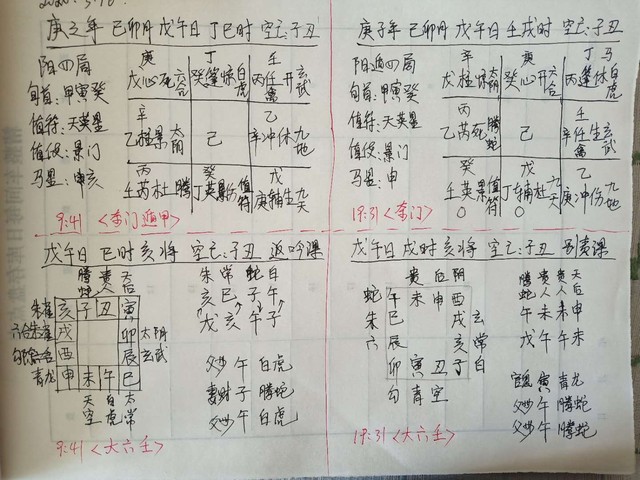 2020.3.10.
庚子年 己卯月 戊午日 丁巳时 空亡:子丑
阳四局
旬首:甲寅癸
值符:天英星
值使:景门
马星:申亥
庚 丁 壬
戊心死六合 癸蓬惊白虎 丙任开玄武
辛 乙
乙柱景太阴 己 辛冲休九地
丙 癸 戊
壬芮杜腾 丁英伤值符 庚辅生九天
9:41 <奇门遁甲>
庚子年 己卯月 戊午日 壬戌时 空亡:子丑
阳遁四局
旬首:甲寅癸
值符:天英星
值使:景门
马星:申
辛 庚 丁马
戊柱惊太阴 癸心开六合 丙蓬休白虎
丙 壬
乙芮死腾蛇 己 辛任生玄武
癸 戊 乙
壬英景值符 丁辅杜九天 庚冲伤九地
19:31 <奇门>
戊午日 巳时亥将 空亡:子丑 返吟课
腾蛇 贵人 天后
朱雀 亥子丑寅
六合 戌 卯 太阴
勾陈 酉 辰 玄武
青龙 申未午巳
天空 白虎 太常
朱常蛇白
亥巳子午
戊亥午子
父 午 白虎
妻财 子 腾蛇
父 午 白虎
9:41 <大六壬>
戊午日 戌时亥将 空亡:子丑 别责课
贵后阴
蛇 午未申酉
朱 巳 戌 玄
六 辰 亥 常
卯寅丑子 白
勾青空
腾蛇 贵人 贵人 天后
午未未申
戊午午未
官鬼 寅 青龙
父 午 腾蛇
父 午 腾蛇
19:31 <大六壬>